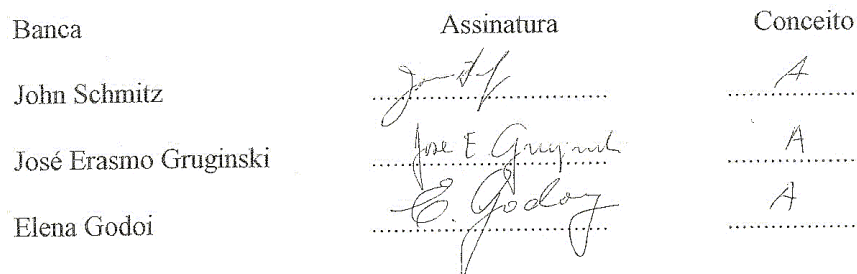 Banca Assinatura Conceito
John Schmitz A
José Erasmo Gruginski Jose E Gruginski A
Elena Godoi E. Godoy A